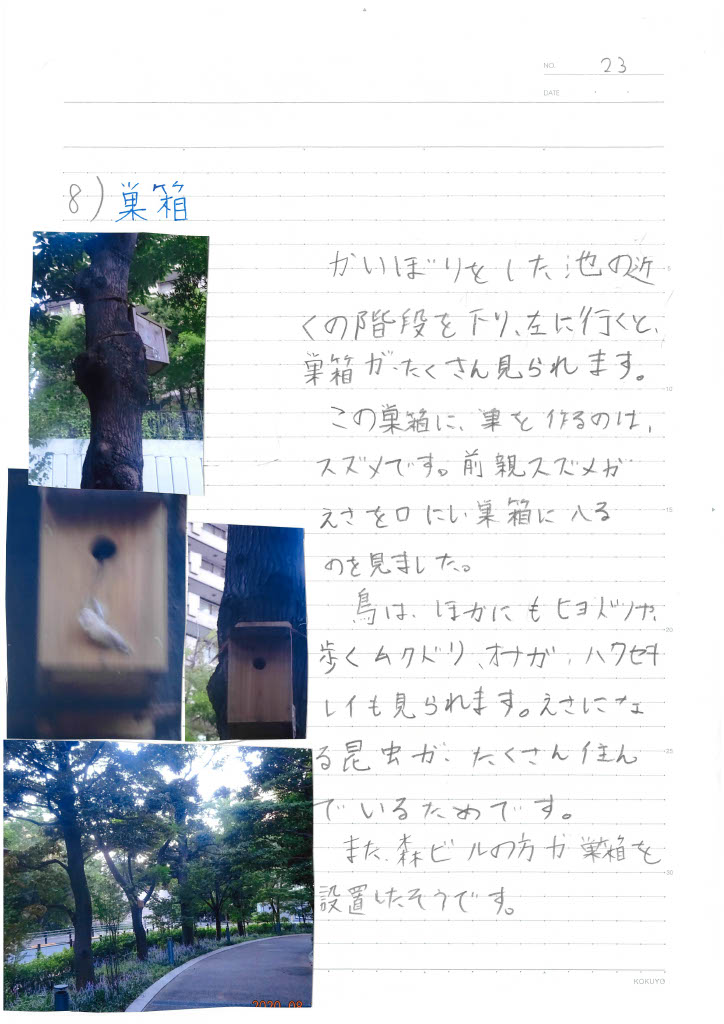 NO. 23
DATE
8) 巣箱
かいぼりをした池の近
くの階段を下り、左に行くと、
巣箱が、たくさん見られます。
この巣箱に、巣を作るのは、
スズメです。前親スズメが
えさを口にい巣箱に入る
のを見ました。
鳥は、ほかにもヒヨドリや、
歩くムクドリ、オナガ、ハクセキ
レイも見られます。えさにな
る昆虫が、たくさん住ん
でいるためです。
また、森ビルの方が巣箱を
設置したそうです。
5
10
15
20
25
30
KOKUYO